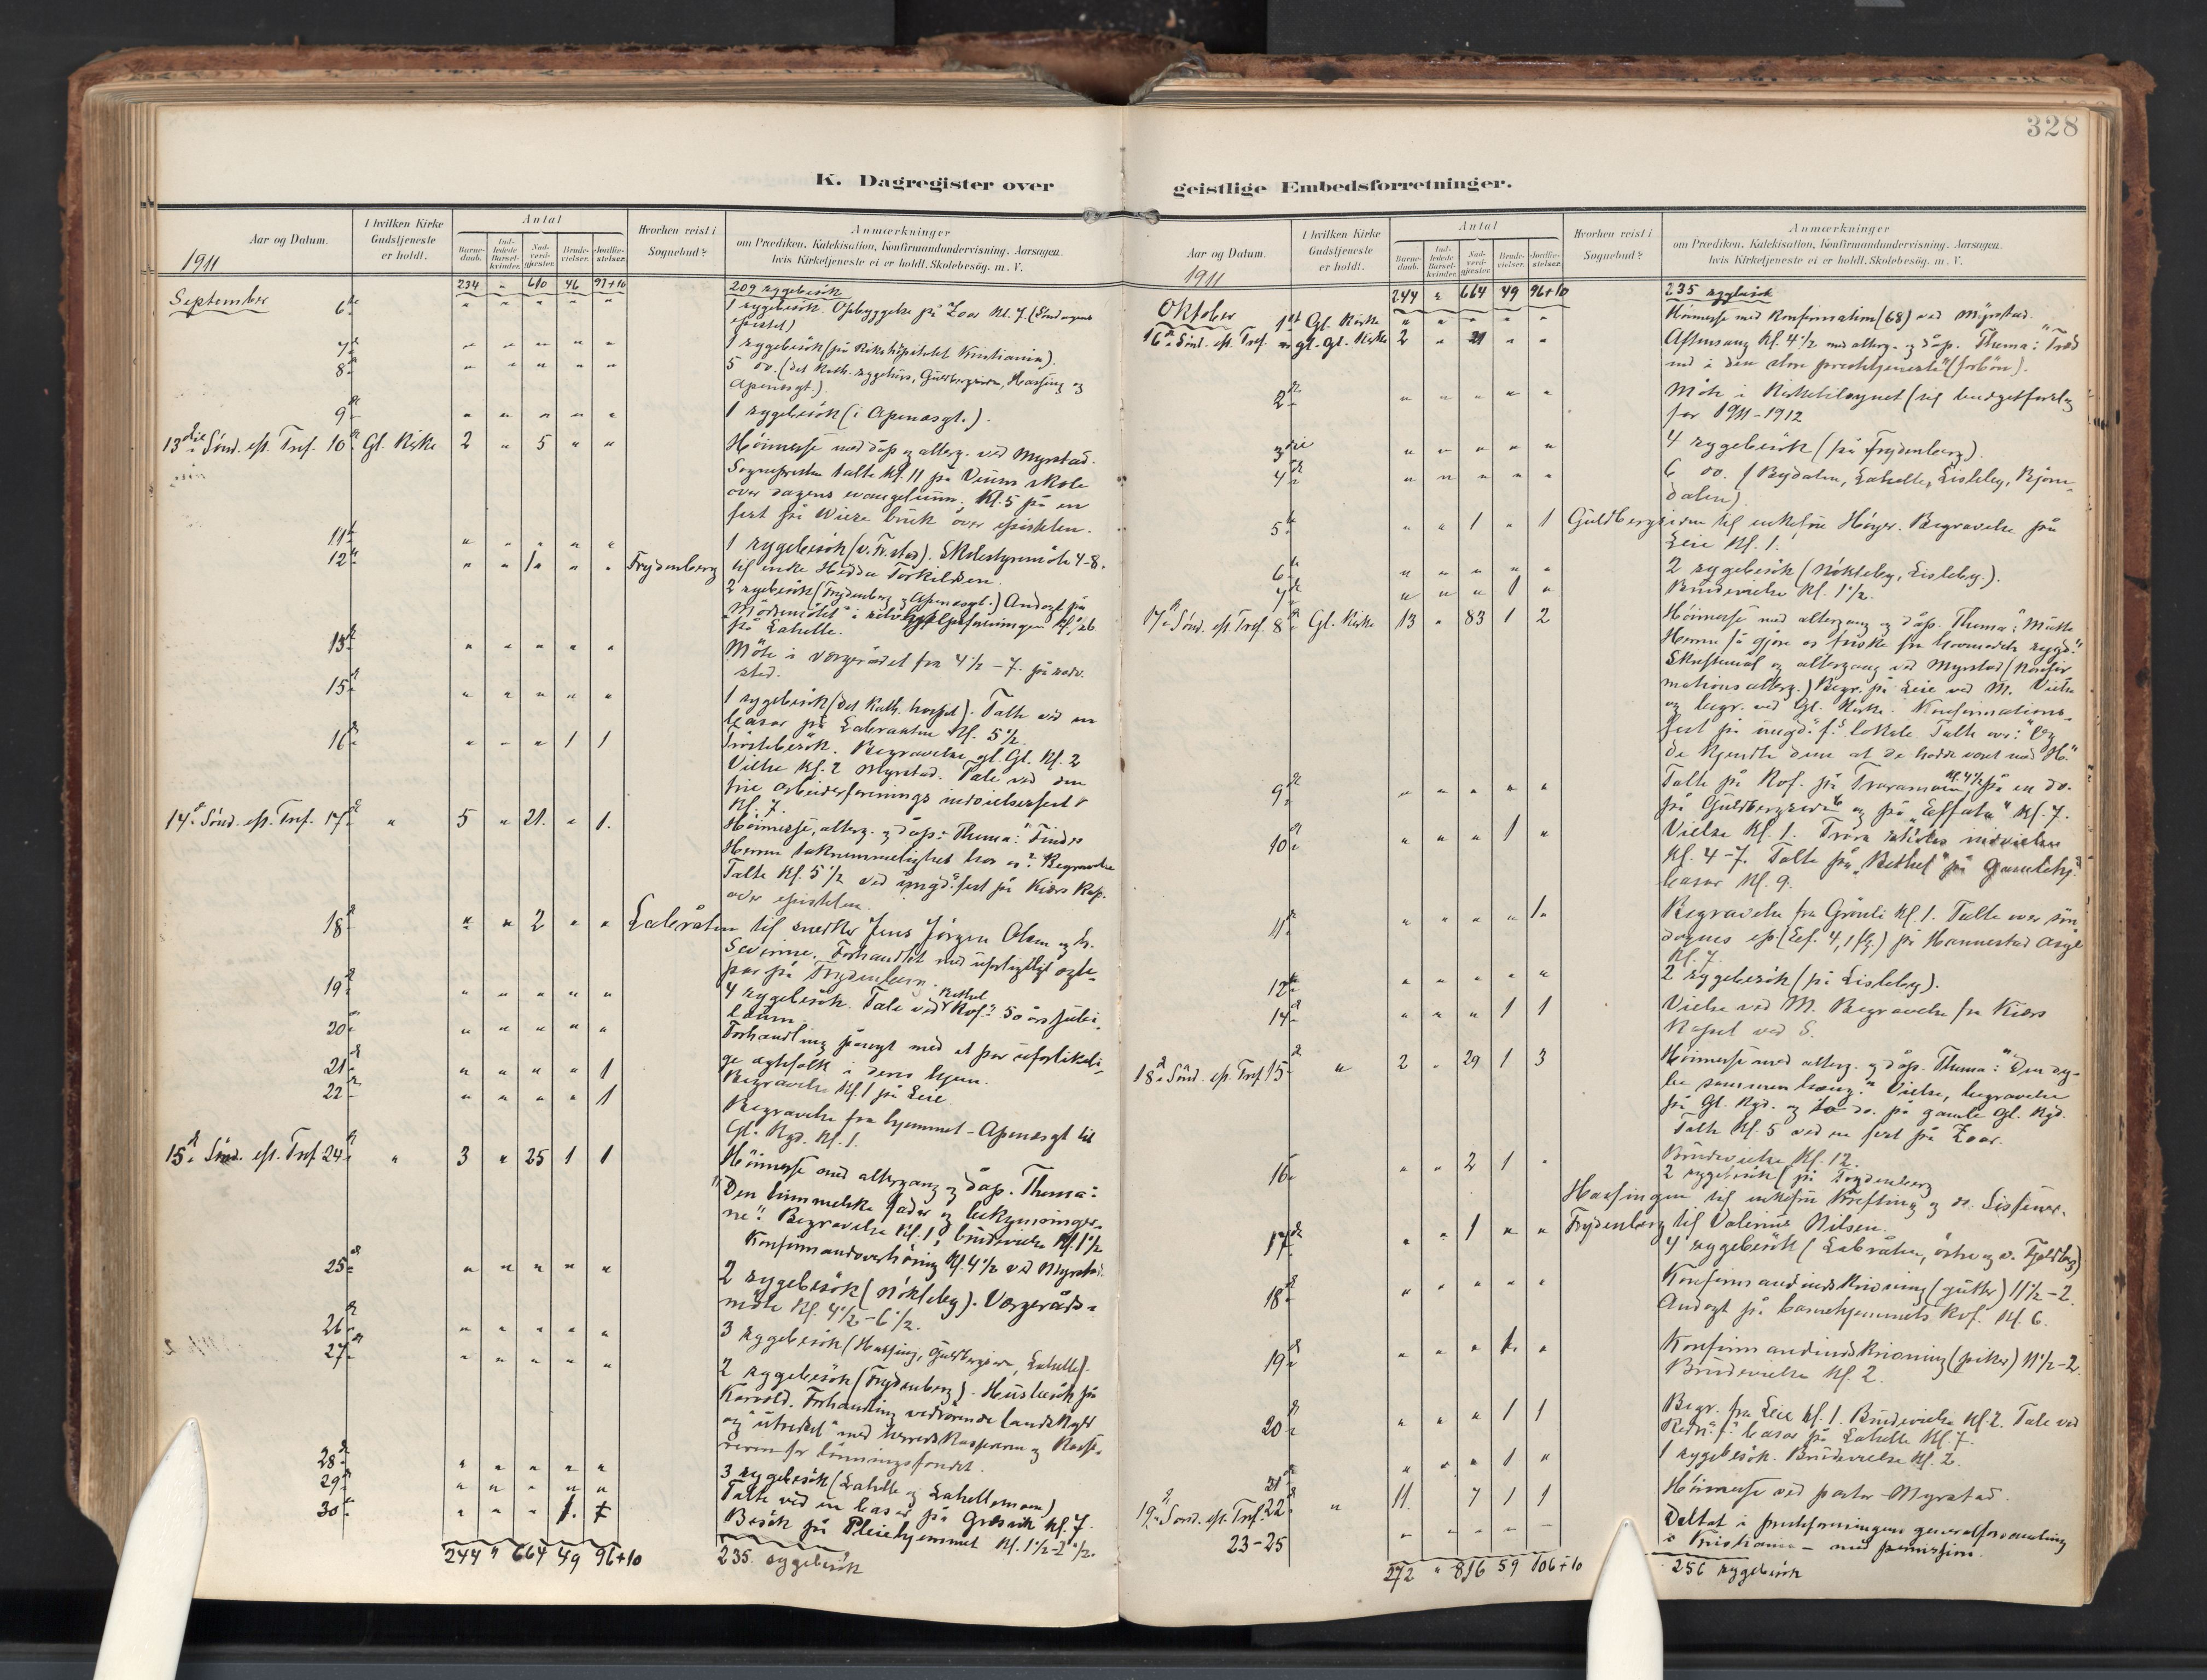 328
K. Dagregister over
geistlige Embedsforretninger.
Aar og Datum.
I hvilken Kirke Gudstjeneste er holdt.
Antal
Barnedaab.
Indledede Barselkvinder.
Nadverdgjester.
Brudevielser.
Jordfæstelser.
Hvorhen reist i Sognebud?
Anmærkninger
om Prædiken, Katekisation, Konfirmandundervisning, Aarsagen
hvis Kirketjeneste ei er holdt, Skolebesøg, m. V.
1911
234 " 610 46 91+10 209 sygebesök
September 6te " " " " " 1 sygebesök. Opbyggelse på Zoar kl. 7. (Søndagens
epistel)
7de " " " " " 1 sygebesök (på Rikshospitalet Kristiania).
8de " " " " " 5 do. (det Kath. sygehus, Guldbergsiden, Hassing og
Apenæsgt.)
9de " " " " " 1 sygebesök (i Apenæsgt.).
13die Sönd. eft. Tref. 10de Gl. Kirke 2 " 5 " " Höimesse med dåp og alterg. ved Myrstad.
Sognepresten talte kl. 11 på Veums skole
over dagens evangelium. Kl. 5 på en
fest på Wiere bruk over epistelen.
11te " " " " " 1 sygebesök Skolestyremöte 4-8.
12te " " 1 " " Trydenberg til enke Hedda Torkildsen.
2 sygebesök (Frydenberg og Apenæsgt.) Andagt på
"Mödremötet" i
på Lahelle.
13de " " " " " Möte i vergerådet fra 4½ - 7. på rådv.
sted.
15de " " " " " 1 sygebesök (det Kath. hospital). Talte ved en
basar på Labraaten kl. 5½.
16de " " " 1 1 Begravelse gl. Gl. kl. 2
Vielse kl. 2 Myrstad. Tale ved den
frie arbeiderforenings indvielsesfest
kl. 7.
14de Sönd. eft. Tref. 17de " 5 " 21. " 1. Höimesse, alterg. og dåp. Thema: "Finder
Herren taknemmelighet hos os? Begravelse
Talte kl. 5½ ved ungd. fest på Kiærs Kap.
over epistelen.
18de " " 2 " " Labråten til snedker Jens Jörgen Olsen og h.
Severine. Forhandlet med uforligeligt ægte-
par på Frydenberg.
19de " " " " " 4 sygebesök. Tale ved Bethel Kvf. 50 års jubi-
læum.
20de " " " " " Forhandling påny med et par uforlikeli-
ge ægtefolk i deres hjem.
21de " " " " 1 Begravelse kl. 1 på Leie
22de " " " " 1 Begravelse fra hjemmet - Apenæsgt til
Gl. Kgd. kl. 1.
15de Sönd. eft. Tref 24de " 3 " 25 1 1 Höimesse med altergang og dåp. Thema:
"Den himmelske fader og bekymringer-
ne". Begravelse kl. 1, brudevielse kl. 1½
Konfirmandoverhöring kl. 4½ ved Myrstad.
25de " " " " " 2 sygebesök (Nökleby). Vergeråds-
möte kl. 4½ - 6½.
26de " " " " " 3 sygebesök (Hassing, Guldbergsiden, Lahelle).
27de " " " " " 2 sygebesök (Frydenberg). Husbesök på
Forhandling vedrörende
og med herredskassereren og Kasse-
reren for lönningsfondet.
28de " " " " " 3 sygebesök (Lahelle og Lahellemoen)
29de " " " " " Talte ved en basar på Gressvik kl. 7.
30te " " " 1. Besök på Pleiehjemmet kl. 1½-2½.
244 " 664 49 96+10 235 sygebesök
Aar og Datum.
I hvilken Kirke Gudstjeneste er holdt.
Antal
Barnedaab.
Indledede Barselkvinder.
Nadverdgjester.
Brudevielser.
Jordfæstelser.
Hvorhen reist i Sognebud?
Anmærkninger
om Prædiken, Katekisation, Konfirmandundervisning, Aarsagen
hvis Kirketjeneste ei er holdt, Skolebesøg, m. V.
1911
244 " 664 49 96+10 235 sygebesök
Oktober 1ste Gl. Kirke " " " " " Höimesse med konfirmation (68) ved Myrstad.
16de Sönd. eft. Tref. gl. Gl. Kirke 2 " 21 " " Aftensang kl. 4½ med alterg. og dåp. Thema: "Træd
ind i den store prestetjeneste" (forbön).
2den " " " " " Möte i Kirketilsynet (til budgetforslag
for 1911-1912
3die " " " " " 4 sygebesök (på Frydenberg).
4de " " " " " 6 do. (Bydalen, Lahelle, Lisleby, Björn-
dalen)
5te " " 1 " 1 Guldbergsiden til enkefru Höyer. Begravelse på
Leie kl. 1.
6te " " " " " 2 sygebesök (Nökleby, Lisleby).
7de " " " 1 " Brudevielse kl. 1½.
17de Sönd. eft. Tref. 8de Gl. Kirke 13 " 83 1 2 Höimesse med altergang og dåp. Thema: "Måtte
Herren få gjöre os friske fra hovmodets syge."
Skriftemål og altergang ved Myrstad (konfir
mations alterg.) Begr. på Leie ved M. Vielse
og begr. ved Gl. Kirke. Konfirmations-
fest på ungd. f.s lokale Talte over: "Og
de kjendte dem at de hadde været med H."
9de " " " " " Talte på Kvf. på Traramoen kl. 4½, på en do.
på Guldbergsiden 6 og på "Effata" kl. 7.
10de " " " 1 " Vielse kl. 1. Trara skoles indvielse
kl. 4-7. Talte på "Bethel" på Gamlehj.s
basar kl. 9.
11te " " " " 1. Begravelse fra Grönli kl. 1. Talte over sön
dagens ep. (Eef. 4,1 flg.) på Hannestad asyl
kl. 7.
12te " " " " " 2 sygebesök (på Lisleby).
14de " " " 1 1 Vielse ved M. Begravelse fra Kiærs
Kapel ved S.
18de Sönd. eft. Tref 15de " 2 " 29 1 3 Höimesse med alterg. og dåp. Thema: "Den dy-
be sammenhæng." Vielse, begravelse
på Gl. Kgd. og to do. på gamle Gl. Kgd.
Talte kl. 5 ved en fest på Zoar.
16de " " 2 1 " Brudevielse kl. 12.
2 sygebesök på Frydenberg
Hassingen til enkefru Krefting og
17de " " 1 " " Frydenberg til Valerius Nilsen.
4 sygebesök (Labråten, östre og v. Fjeldberg)
18de " " " " " Konfirmandindskrivning (gutter) 11½-2.
Andagt på barnehjemmets Kvf. kl. 6.
19de " " " 1. " Konfirmandindskrivning (piker) 11½-2.
Brudevielse kl. 2.
20de " " " 1 1 Begr. fra Leie kl. 1. Brudevielse kl. 2. Tale ved
basar på Lahelle kl. 7.
21de " " " 1 " 1 sygebesök. Brudevielse kl. 2.
19de Sönd. eft. Tref. 22de " 11. 7 1 1 Höimesse ved pastor Myrstad.
23-25 " " " " " Deltat i presteforeningens generalforsamling
i Kristiania - med permission.
272 " 816 59 106+10 256 sygebesök